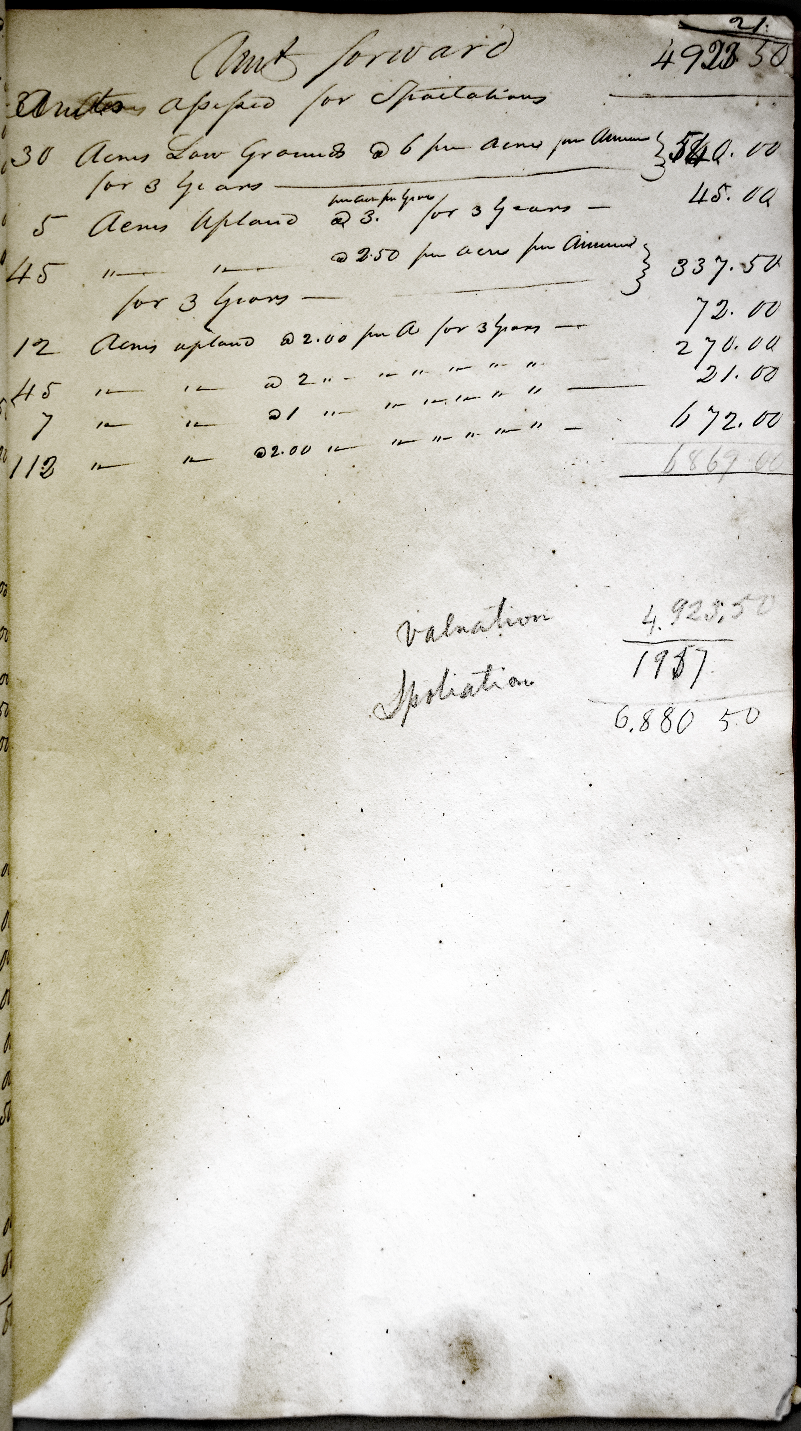 21.
Amt forward 4923 50
assessed for Spoilations
30 Acres Low Grounds @ 6 per Acre per Annum } 540.00
for 3 Years
5 Acres Upland @ 3. per acre per year for 3 Years — 45.00
45 " " @ 2.50 per acre per Annum } 337.50
for 3 Years —
12 Acres upland @ 2.00 per A for 3 Years — 72.00
45 " " @ 2 " " " " " " 270.00
7 " " @ 1 " " " " " " — 21.00
112 " " @ 2.00 " " " " " " — 672.00
6869 00
Valuation 4.923,50
Spoliation 1957
6.880 50